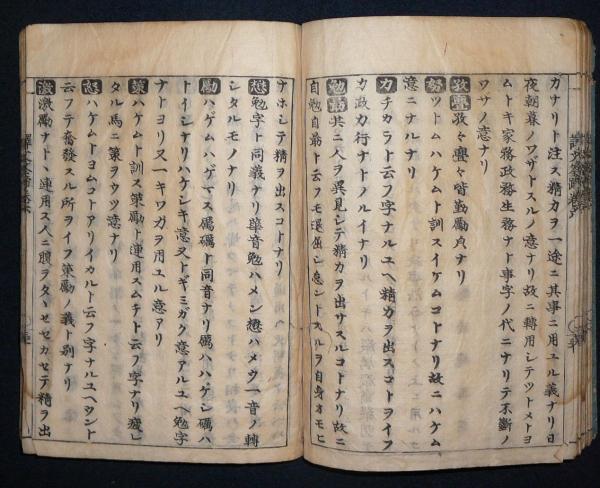 カナリト注ス精力ヲ一途ニ其事ニ用ユル義ナリ日
夜朝暮ノワザトスルノ意ナリ故ニ轉用シテツトメトヨ
ムトキ家務政務生務ナト事字ノ代ニナリテ不斷ノ
ワサノ意ナリ
孜亹孜々亹々皆勤勵皃ナリ
努ツトムハケムト訓スイケムコトナリ故ニハケム
意ニナルナリ
力チカラト云フ字ナルユヘ精力ヲ出スコトヲイフ
力政力行ナトノルイナリ
勉勖共ニ人ヲ異見シテ精力ヲ出サスルコトナリ故ニ
自勉自勖ト云フモ退屈シ怠ントスルヲ自身オモヒ
ナホシテ精ヲ出スコトナリ
懋勉字ト同義ナリ華音勉ハメン懋ハメウ一音ノ轉
シタルモノナリ
勵ハゲムハゲマス厲礪ト同音ナリ厲ハハゲシ礪ハ
トイシナリハケシキ意又トギミガク意アルユヘ勉字
ナトヨリ又一キワガヲ用ユル意アリ
策ハケムト訓ス策勵ト連用スムチト云フ字ナリ疲レ
タル馬ニ策ヲウツ意ナリ
ハケムトヨムコトアリイカルト云フ字ナルユヘウント
云フテ奮發スル所ヲイフ策勵ノ義ト別ナリ
激激勵ナト丶連用ス人ニ腹ヲタ丶セセカセテ精ヲ出